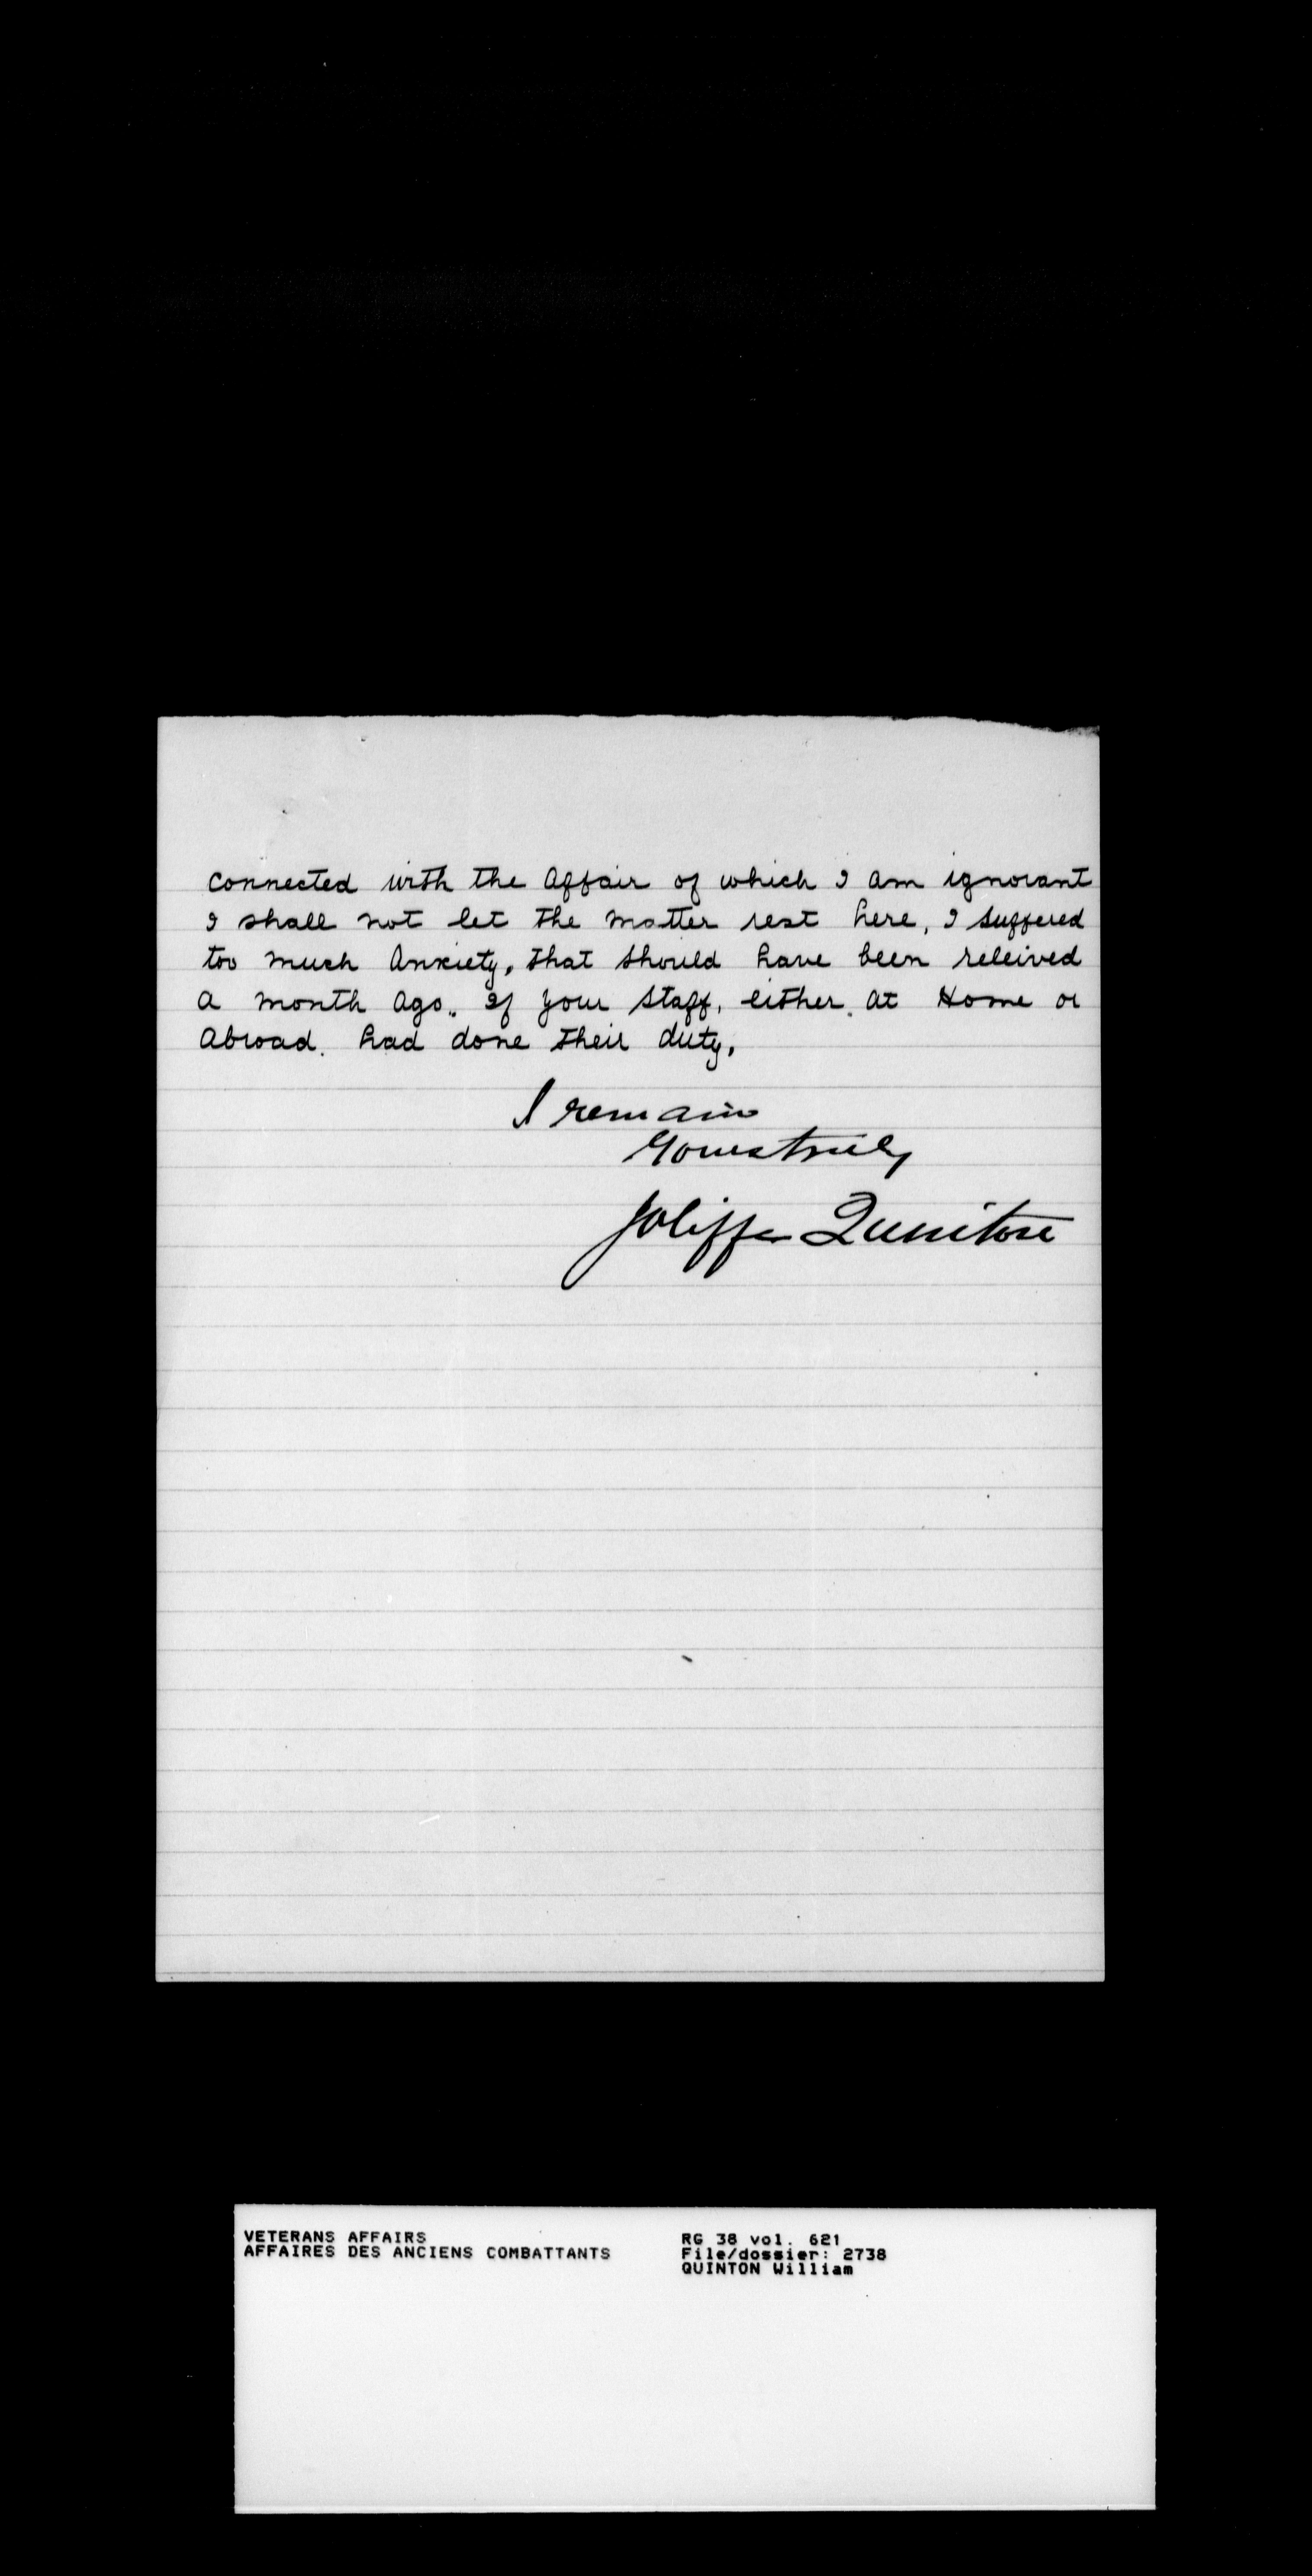 connected with the affair of which I am ignorant
I shall not let the matter rest here, I suffered
too much Anxiety, that should have been releived
a month ago. If your staff, either. at Home or
Abroad. had done their duty.
I remain
Yours truly
Joliffe Quinton
VETERANS AFFAIRS
AFFAIRES DES ANCIENS COMBATTANTS
RG 38 vol. 621
File/dossier: 2738
QUINTON William